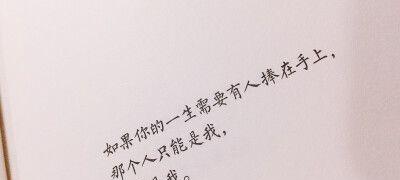 如果你的一生需要有人捧在手上，
那个人只能是我，
是我。